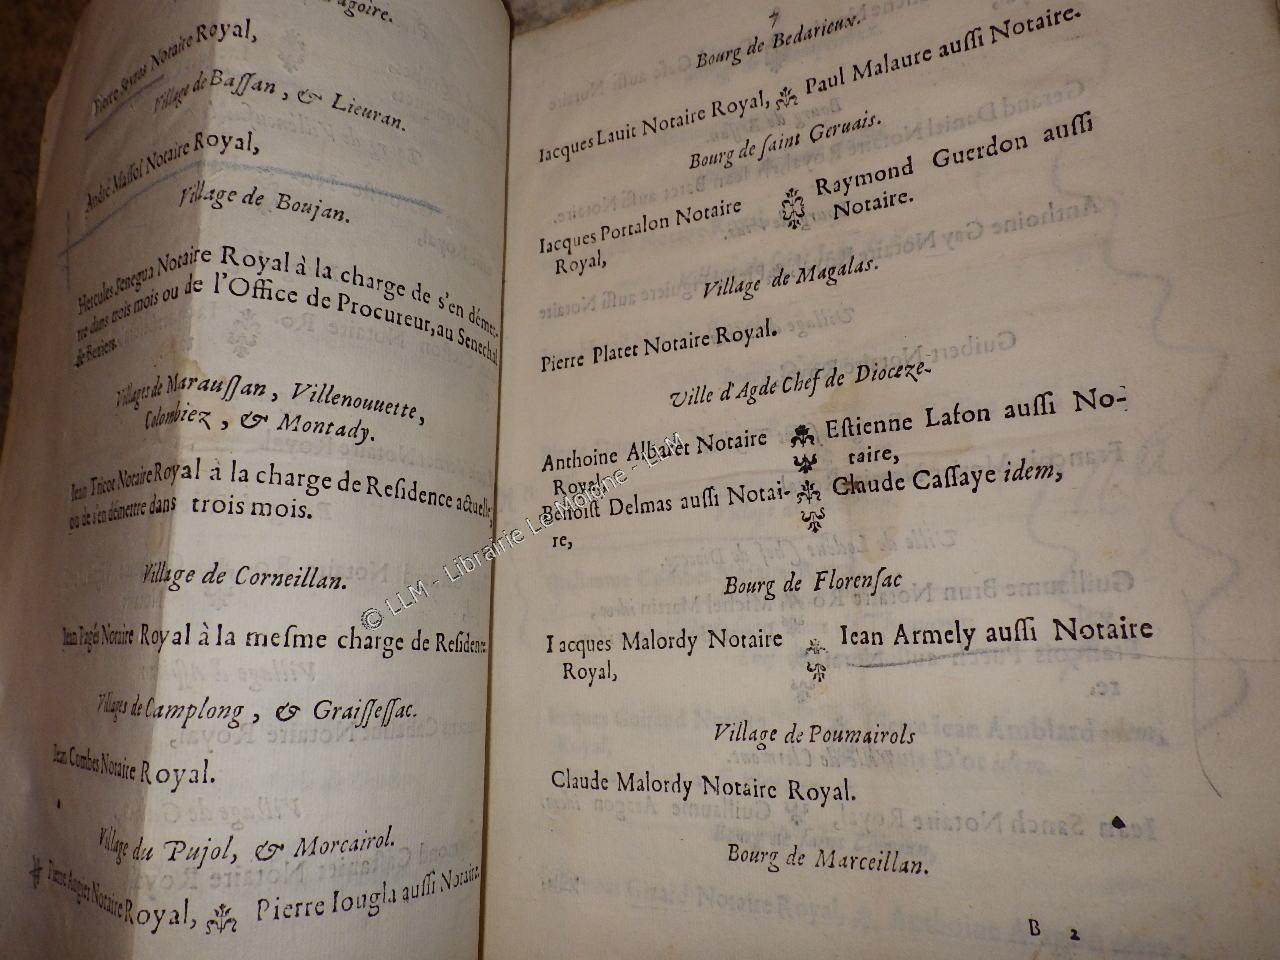 Pierre Seures Notaire Royal,
Village de Baſſan, & Lieuran.
André Maſſol Notaire Royal,
Village de Boujan.
Hercules Senegua Notaire Royal à la charge de s'en démet-
tre dans trois mois ou de l'Office de Procureur, au Senechal
de Beziers.
Villages de Marauſſan, Villenouuette,
Colombiez, & Montady.
Iean Tricot Notaire Royal à la charge de Reſidence actuelle,
ou de s'en démettre dans trois mois.
Village de Corneillan.
Iean Pagés Notaire Royal à la meſme charge de Reſidence.
Villages de Camplong, & Graiſſeſſac.
Iean Combes Notaire Royal.
Village du Pujol, & Morcairol.
Pierre Angier Notaire Royal, Pierre Iougla auſſi Notaire.
7
Bourg de Bedarieux.
Iacques Lauit Notaire Royal, Paul Malaure auſſi Notaire.
Bourg de ſaint Geruais.
Iacques Portalon Notaire Royal, Raymond Guerdon auſſi Notaire.
Village de Magalas.
Pierre Platet Notaire Royal.
Ville d'Agde Chef de Dioceze.
Anthoine Albaret Notaire Royal, Eſtienne Lafon auſſi No-
taire,
Benoiſt Delmas auſſi Notai-
re, Claude Caſſaye idem,
Bourg de Florenſac
Iacques Malordy Notaire Royal, Iean Armely auſſi Notaire
Village de Poumairols
Claude Malordy Notaire Royal.
Bourg de Marceillan.
B 2
© LLM - Librairie Le Moigne - LLM